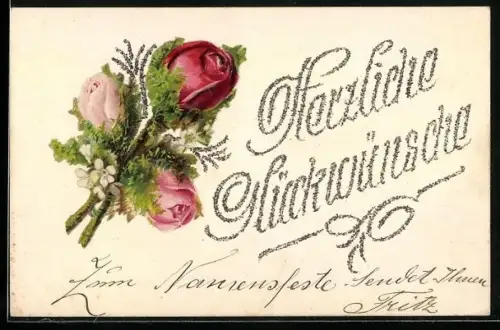 Herzliche
Glückwünsche
Zum Namensfeste sendet Ihnen
Fritz